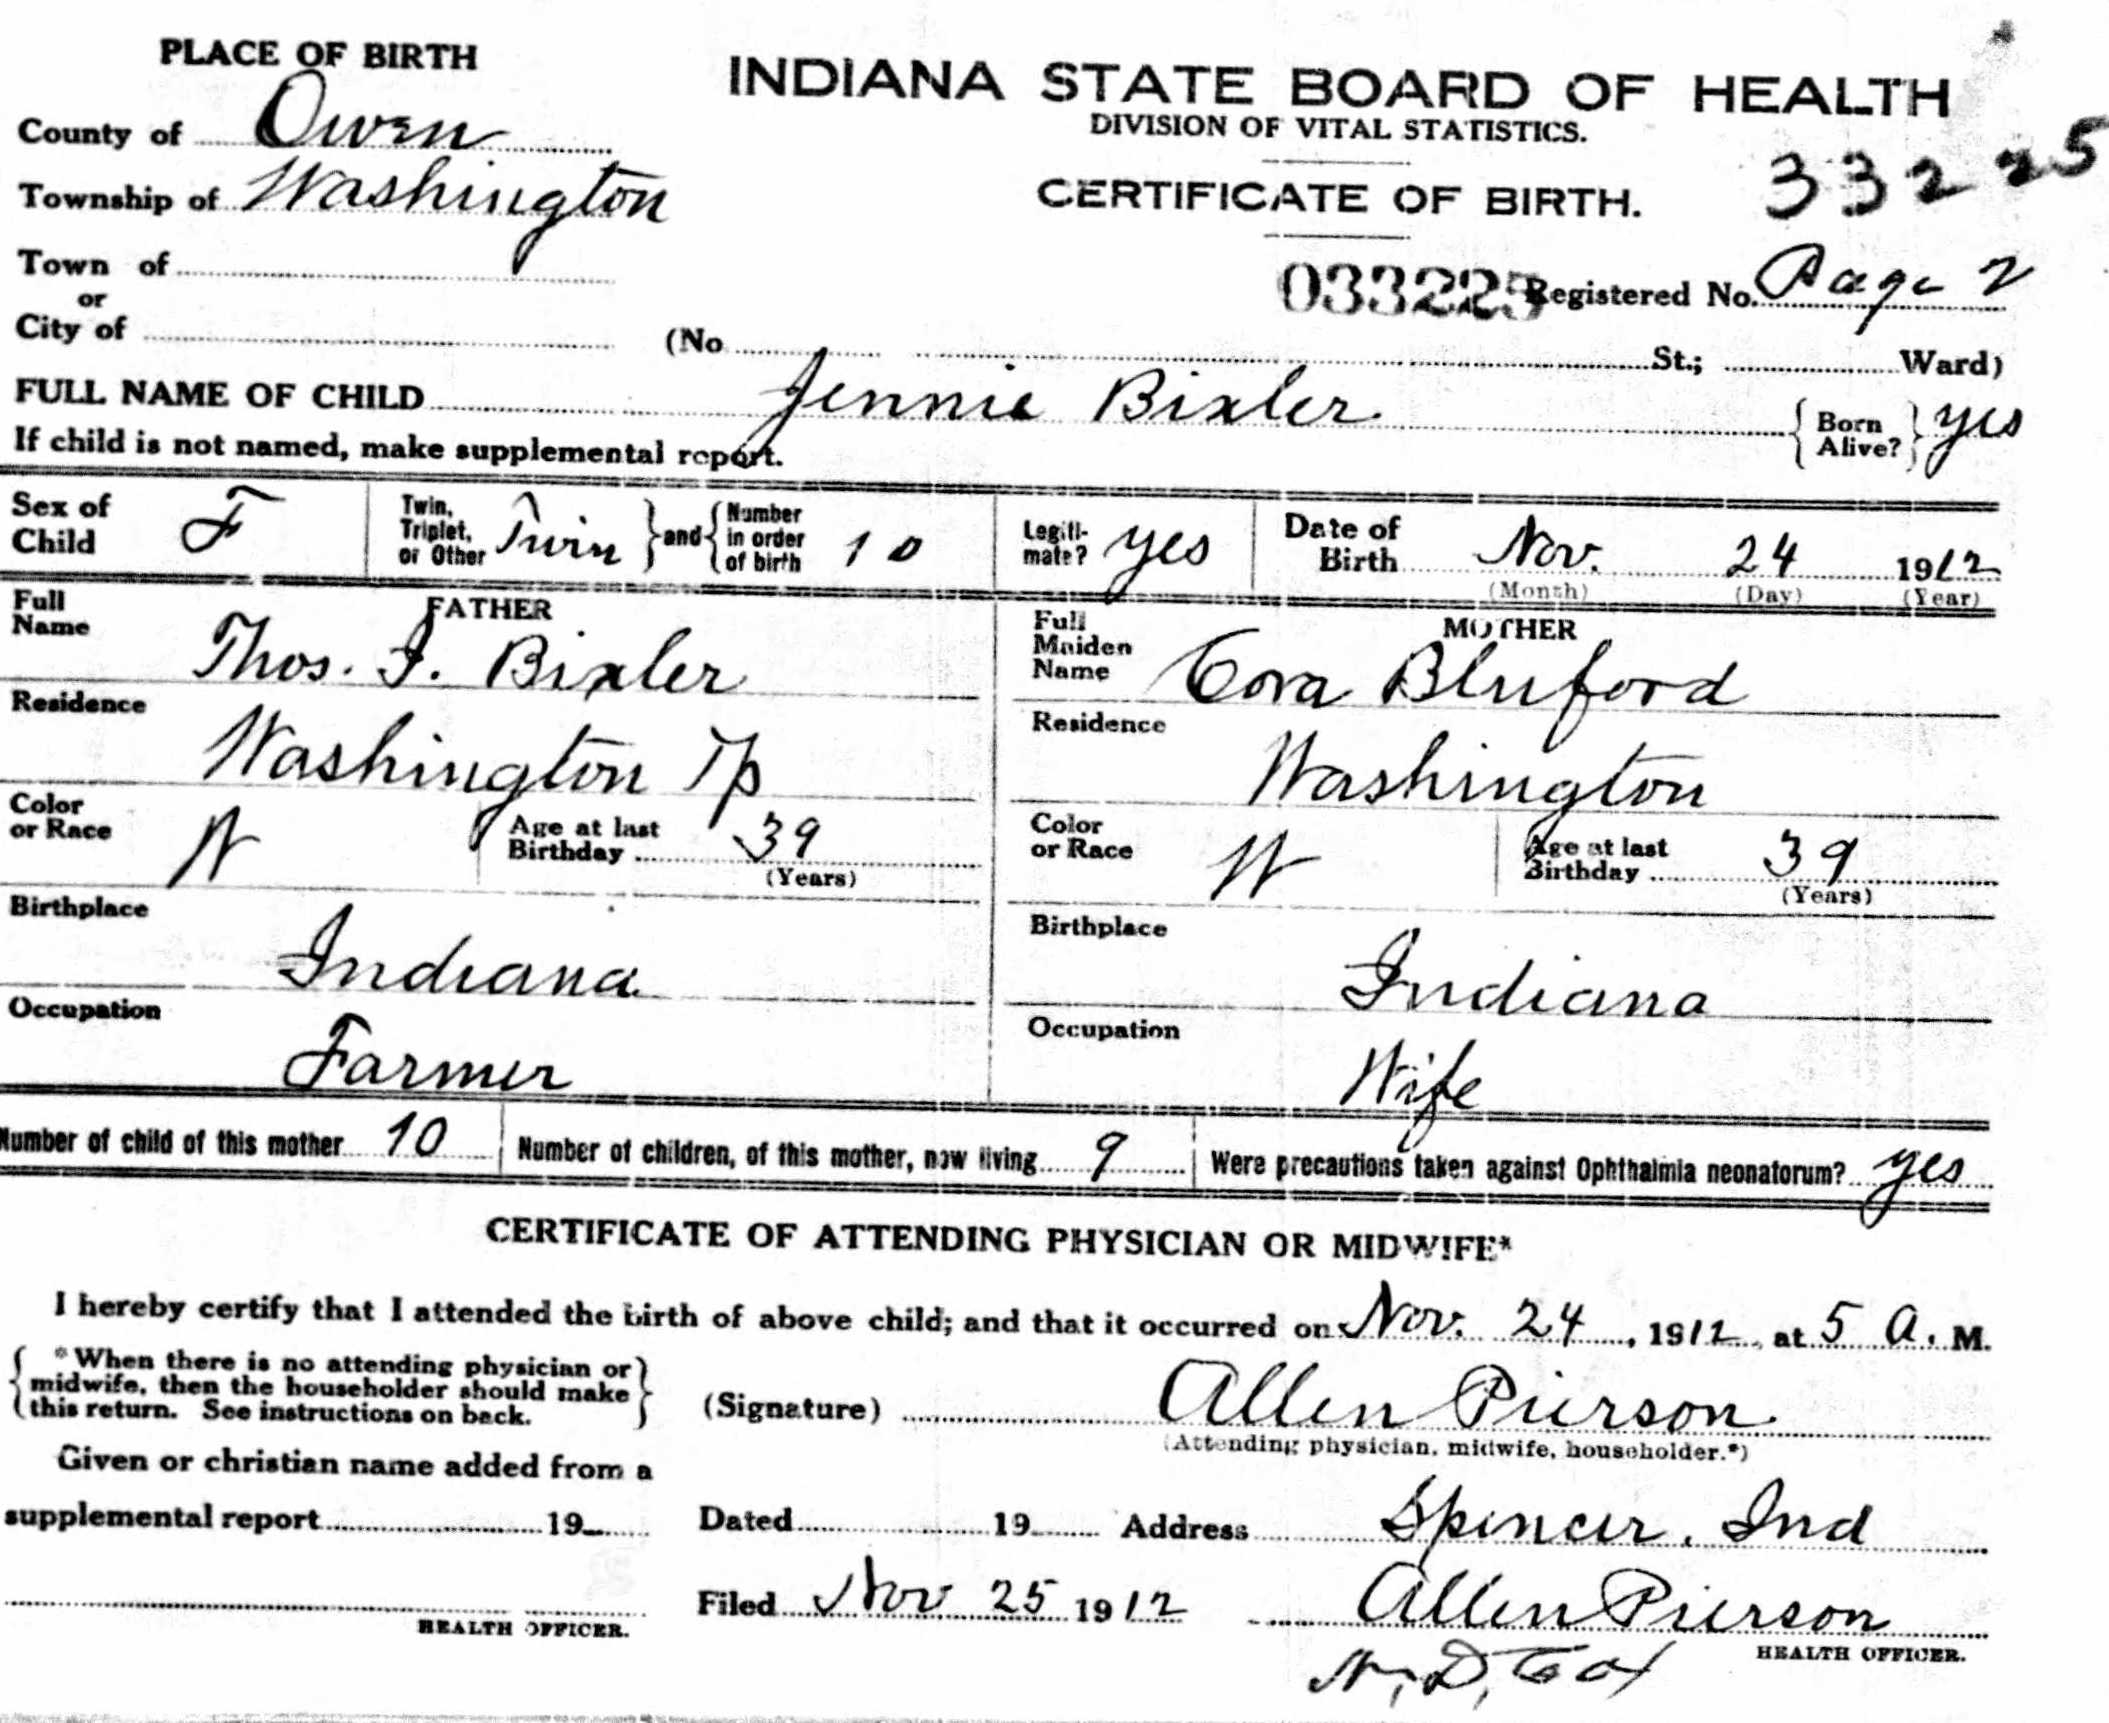 PLACE OF BIRTH
INDIANA STATE BOARD OF HEALTH
DIVISION OF VITAL STATISTICS.
County of Owen
CERTIFICATE OF BIRTH. 33225
Township of Washington
Town of
or
033225 Registered No. Page 2
City of (No. St.; Ward)
FULL NAME OF CHILD Jennie Bixler { Born Alive? } yes
If child is not named, make supplemental report.
Sex of Child F
Twin, Triplet, or Other Twin } and { Number in order of birth 10
Legitimate? yes
Date of Birth Nov. 24 1912
(Month) (Day) (Year)
FATHER
Full Name Thos. I. Bixler
Residence
Washington Tp
Color or Race W Age at last Birthday 39
(Years)
Birthplace
Indiana
Occupation
Farmer
MOTHER
Full Maiden Name Cora Bluford
Residence
Washington
Color or Race W Age at last Birthday 39
(Years)
Birthplace
Indiana
Occupation
Wife
Number of child of this mother 10 Number of children, of this mother, now living 9 Were precautions taken against Ophthalmia neonatorum? yes
CERTIFICATE OF ATTENDING PHYSICIAN OR MIDWIFE*
I hereby certify that I attended the birth of above child; and that it occurred on Nov. 24, 1912, at 5 A. M.
{ *When there is no attending physician or
midwife, then the householder should make
this return. See instructions on back. }
(Signature) Allen Pierson
(Attending physician, midwife, householder.*)
Given or christian name added from a
supplemental report 19
Dated 19 Address Spencer, Ind
Filed Nov 25 1912 Allen Pierson
HEALTH OFFICER.
HEALTH OFFICER.
N. D. Cox